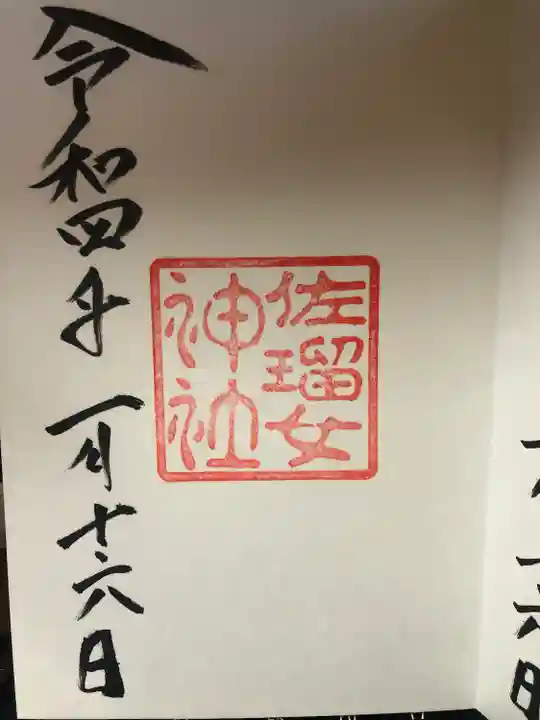 佐瑠女
神社
令和四年一月十六日
六日